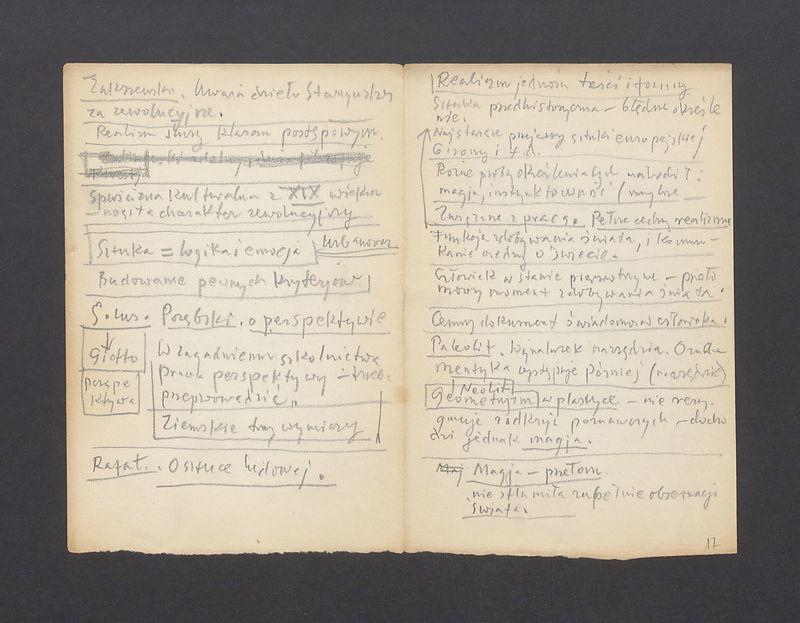 Zakrzewska. Uważa dzieło Starzyńskiego
za rewolucyjne.
Realizm służy klasom postępowym.
Spuścizna kulturalna z XIX wieku
– nosiła charakter rewolucyjny
Sztuka = logika i emocja Urbanowicz
Budowanie pewnych kryteryów
Porębski. o perspektywie
Giotto
perspe
ktywa
W zagadnieniu szkolnictwa
prawa perspektywy – trzeba
przeprowadzić.
Ziemskie trzy wymiary
Rafał. O sztuce ludowej.
Realizm jedność treści i formy
Sztuka przedhistoryczna – błędne określe
nie.
Najstarsze przejawy sztuki europejskiej
i t.d.
Różne próby określenia tych malowideł:
magja, instynktowność (mylne
Związane z pracą. Pełne cechy realizmu
Funkcja zdobywania świata, i komu-
kanie wiedzy o świecie.
Człowiek w stanie pierwotnym – przeło
mowy moment zdobywania świata.
Cenny dokument świadomości człowieka.
Paleolit. Wynalazek narzędzia. Orna
mentyka występuje później (narzędzie)
Neolit
Geometryzm w plastyce – nie rezy-
gnuje z odkryć poznawczych – docho
dzi jednak magja.
Maj Magja – przełom.
nie stłumiła zupełnie obserwacji
świata.
12